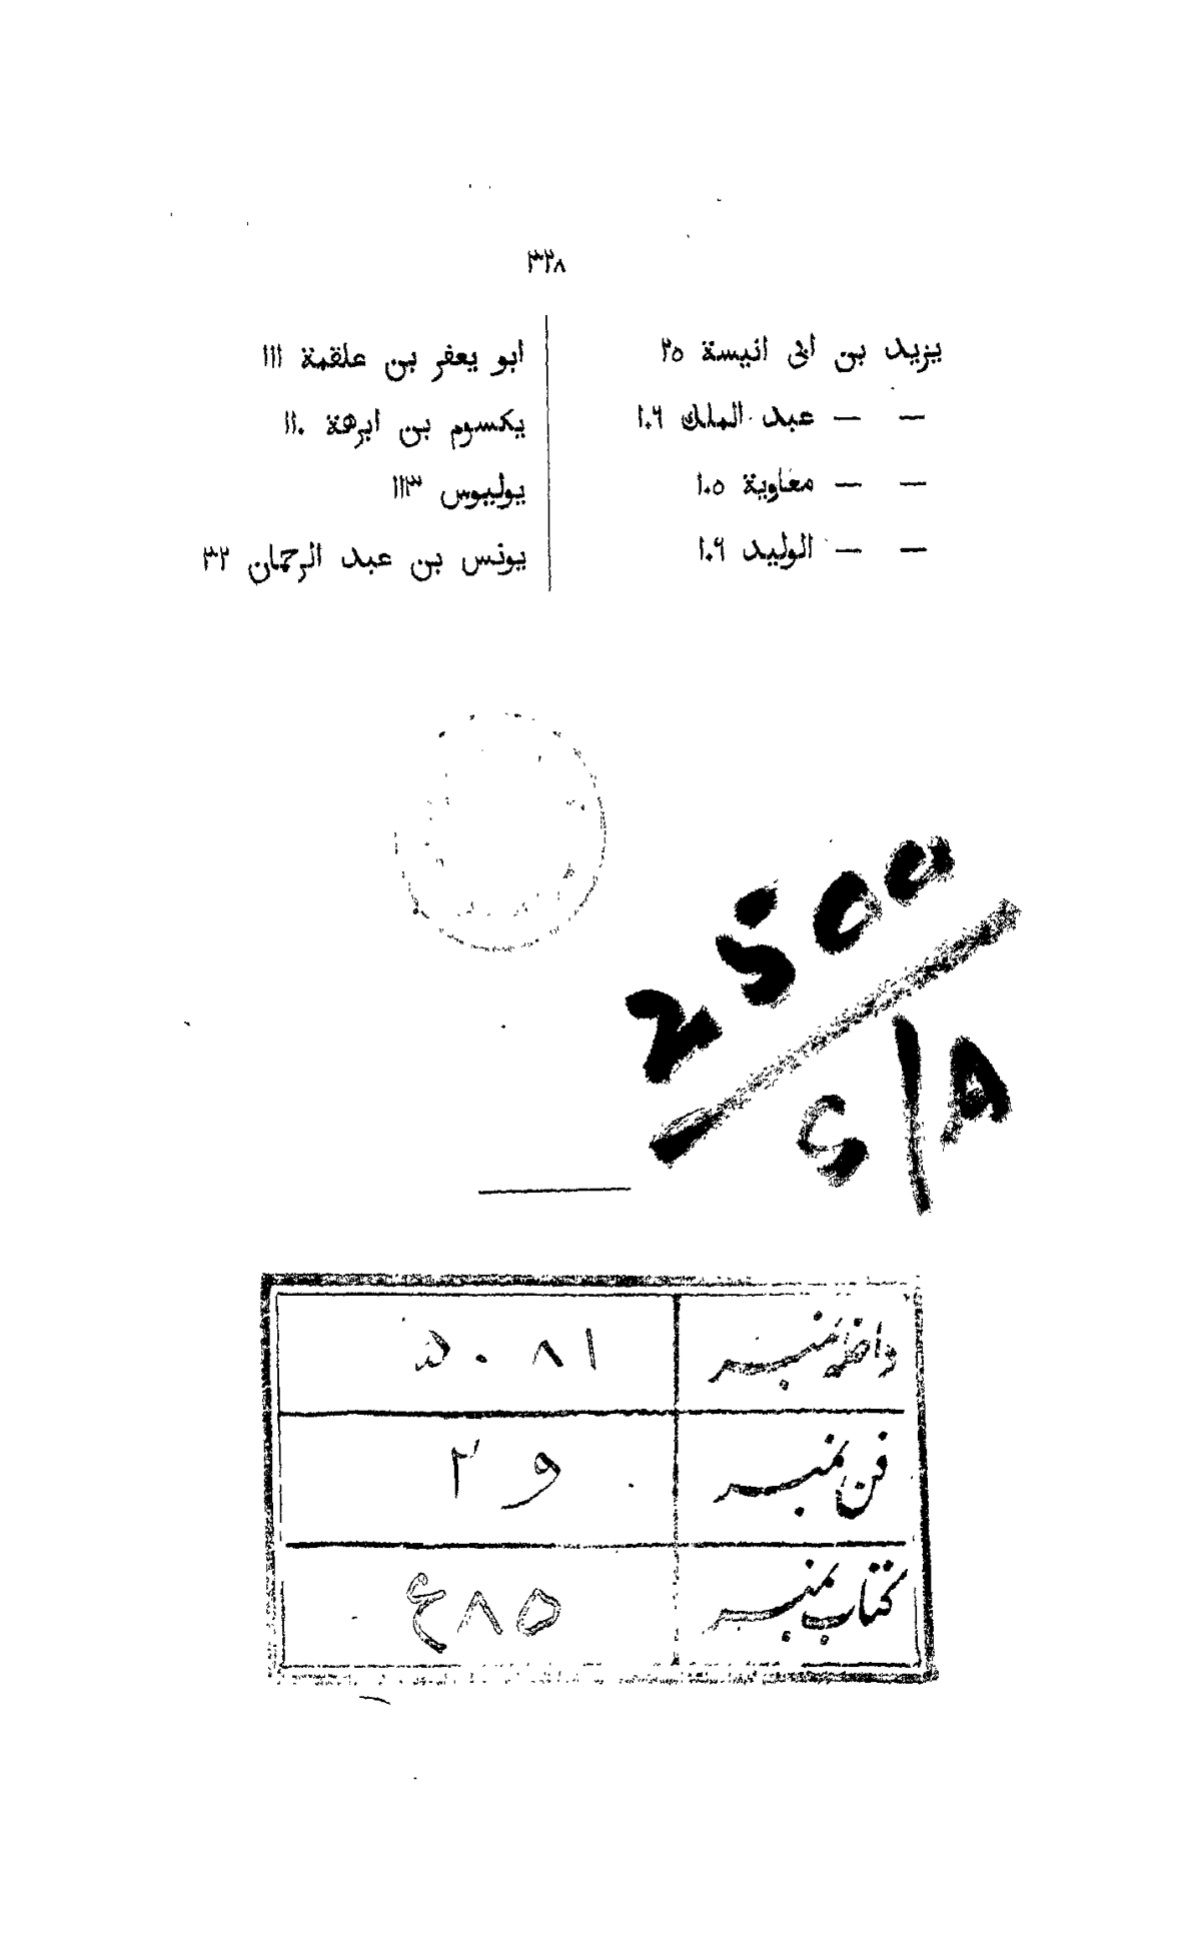 ٣٢٨
يزيد بن ابى انيسة ٢٥
— — عبد الملك ١٠٦
— — معاوية ١٠٥
— — الوليد ١٠٦
ابو يعفر بن علقمة ١١١
يكسوم بن ابرهة ١١٠
يوليوس ١١٣
يونس بن عبد الرحمان ٣٢
2500
S/A
داخلہ نمبر
فن نمبر
کتاب نمبر